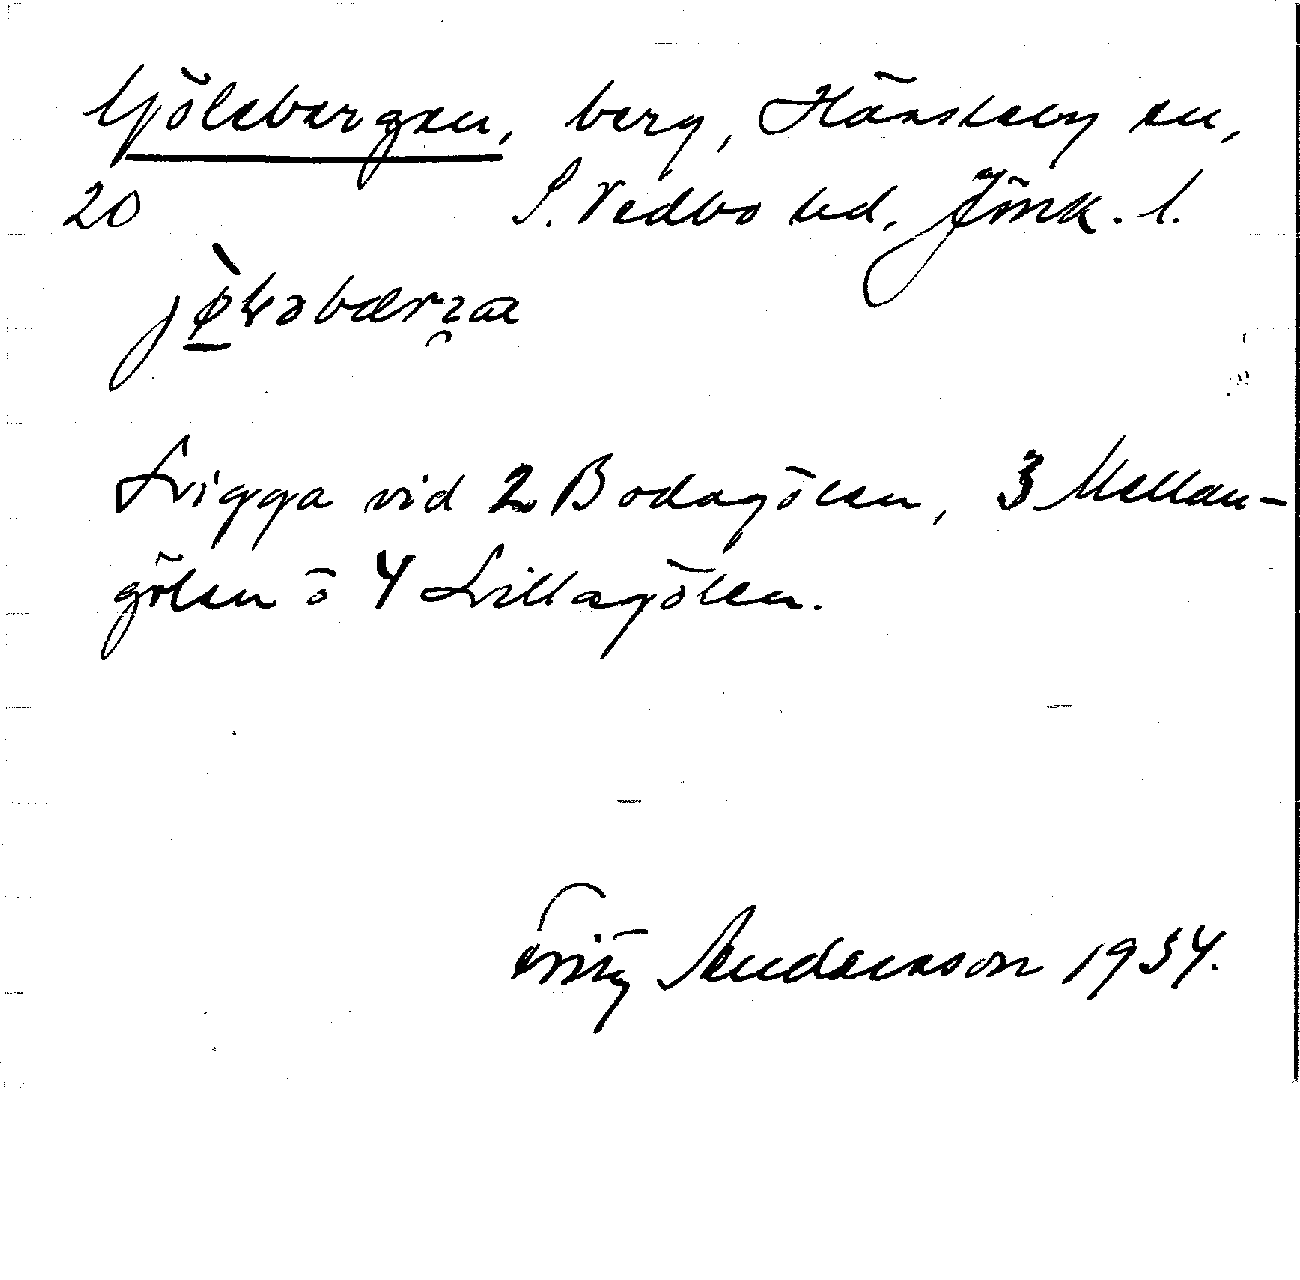 Gölebergen, berg, Hässleby sn,
20 S. Vedbo hd. Jönk. l.
Ligga vid 2 Bodagölen, 3 Mellan-
gölen o 4 Lillagölen.
Fritz Andersson 1934.